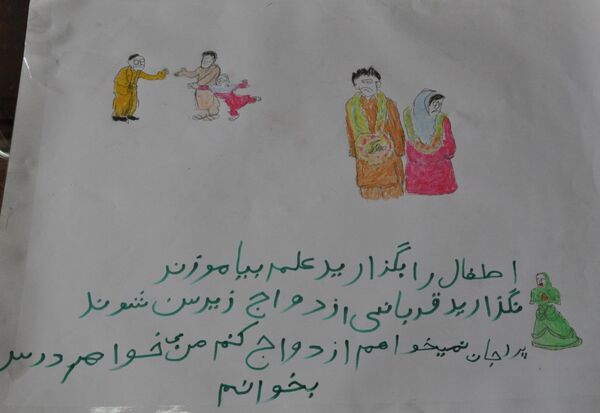 اطفال را بگذارید علم بیاموزند
نگذارید قربانی ازدواج زیر سن شوند
پدر جان نمیخواهم ازدواج کنم من می خواهم درس
بخوانم